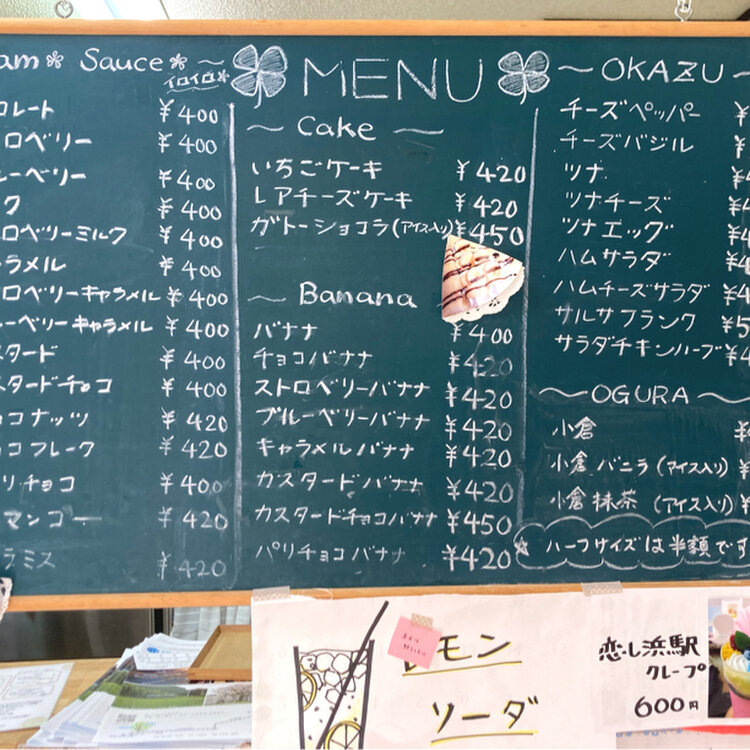 am＊ Sauce＊〜
イロイロ＊
コレート ¥400
ロベリー ¥400
ルーベリー ¥400
ク ¥400
ロベリーミルク ¥400
ャラメル ¥400
ロベリーキャラメル ¥400
ルーベリーキャラメル ¥400
スタード ¥400
スタードチョコ ¥400
ョコナッツ ¥420
ョコフレーク ¥420
リチョコ ¥400
マンゴー ¥420
ラミス ¥420
MENU
〜 Cake 〜
いちごケーキ ¥420
レアチーズケーキ ¥420
ガトーショコラ(アイス入り) ¥450
〜 Banana
バナナ ¥400
チョコバナナ ¥420
ストロベリーバナナ ¥420
ブルーベリーバナナ ¥420
キャラメルバナナ ¥420
カスタードバナナ ¥420
カスタードチョコバナナ ¥450
パリチョコバナナ ¥420
〜 OKAZU 〜
チーズペッパー ¥
チーズバジル ¥
ツナ ¥4
ツナチーズ ¥4
ツナエッグ ¥4
ハムサラダ ¥4
ハムチーズサラダ ¥4
サルサフランク ¥5
サラダチキンハーブ ¥4
〜 OGURA 〜
小倉 ¥
小倉バニラ(アイス入り) ¥
小倉抹茶(アイス入り) ¥
ハーフサイズは半額です
モン
ソーダ
恋し浜駅
クレープ
600円